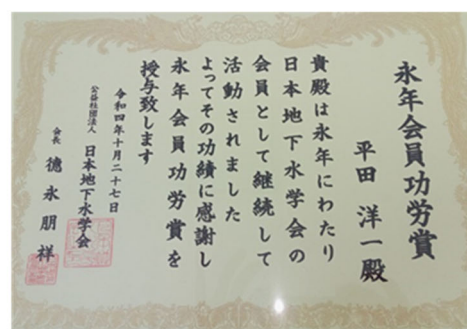 永年会員功労賞
平田 洋一殿
貴殿は永年にわたり
日本地下水学会の
会員として継続して
活動されました
よってその功績に感謝し
永年会員功労賞を
授与致します
令和四年十月二十七日
公益社団法人 日本地下水学会
会長 徳永朋祥